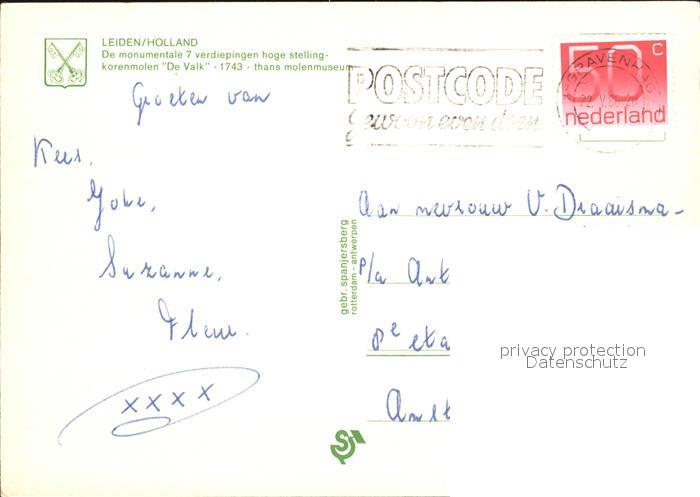 LEIDEN/HOLLAND
De monumentale 7 verdiepingen hoge stelling-
korenmolen "De Valk" - 1743 - thans molenmuseum
Groeten van
Kees,
Joke,
Suzanne,
Fleur.
xxxx
POSTCODE
gewoon even doen
50 C
nederland
gebr. spanjersberg
rotterdam - antwerpen
Aan mevrouw V. Draaisma-
p/a Ant
Amst
privacy protection
Datenschutz